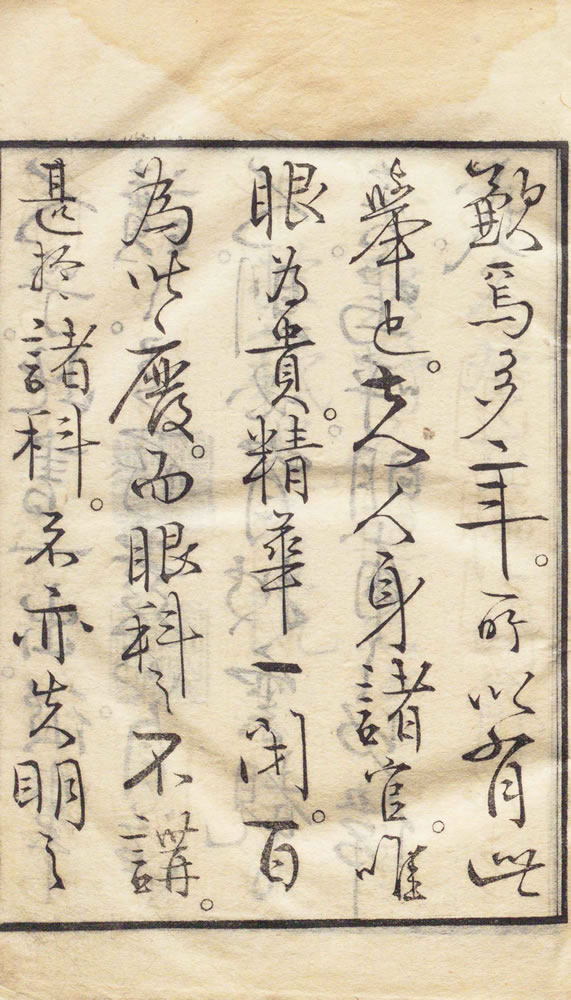 歉焉多年。所以有此
舉也。夫人身諸官。唯
眼為貴。精華一閉。百
為皆廢。而眼科之不講。
甚於諸科。不亦失明之